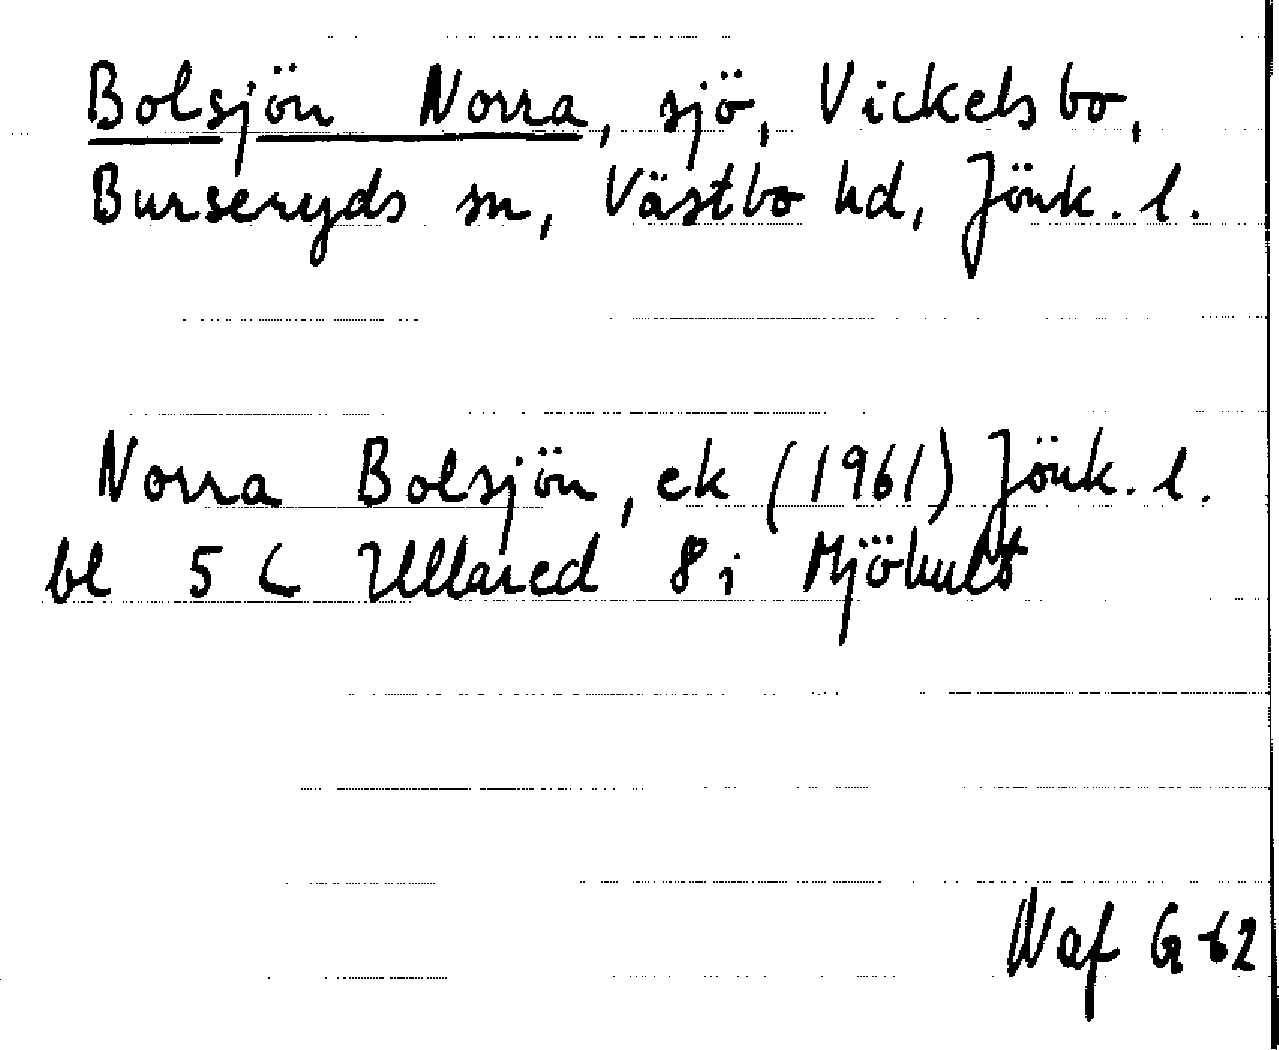 Bolsjön Norra, sjö, Vickelsbo,
Burseryds sn, Västbo hd, Jönk. l.
Norra Bolsjön, ek (1961) Jönk. l.
bl 5 C Ullared 8 i Mjöhult
Waf G-62